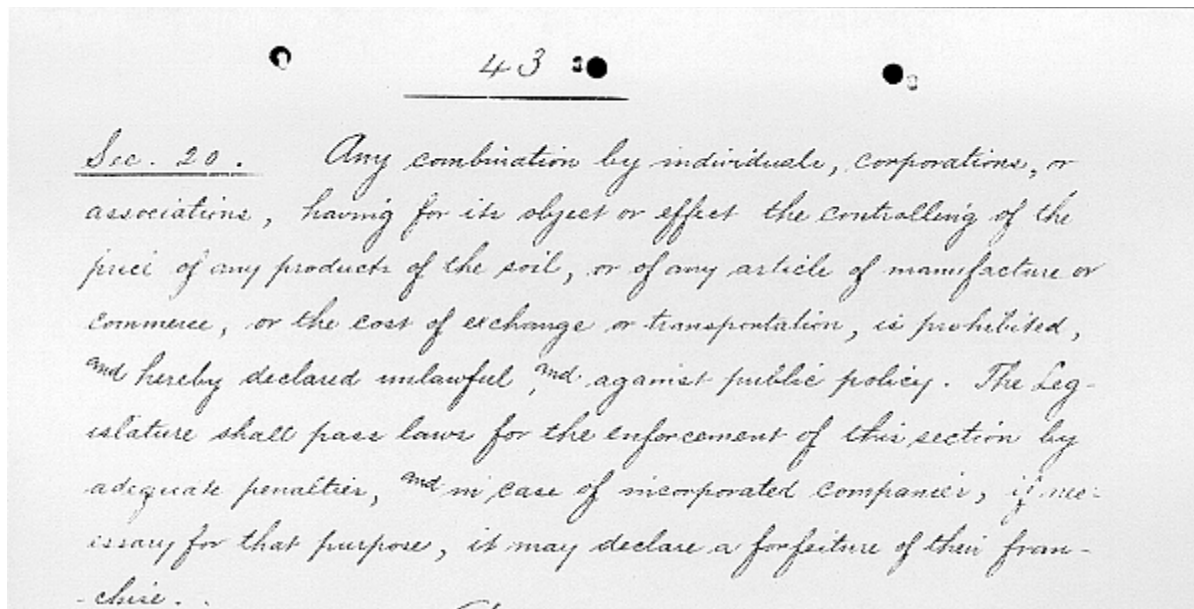 43
Sec. 20. Any combination by individuals, corporations, or
associations, having for its object or effect the controlling of the
price of any products of the soil, or of any article of manufacture or
commerce, or the cost of exchange or transportation, is prohibited,
and hereby declared unlawful, and against public policy. The Leg-
islature shall pass laws for the enforcement of this section by
adequate penalties, and in case of incorporated companies, if nec-
essary for that purpose, it may declare a forfeiture of their fran-
-chise.